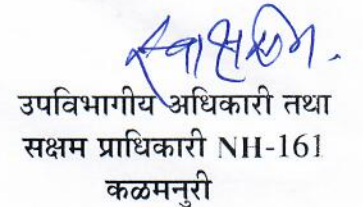 उपविभागीय अधिकारी तथा
सक्षम प्राधिकारी NH-161
कळमनुरी